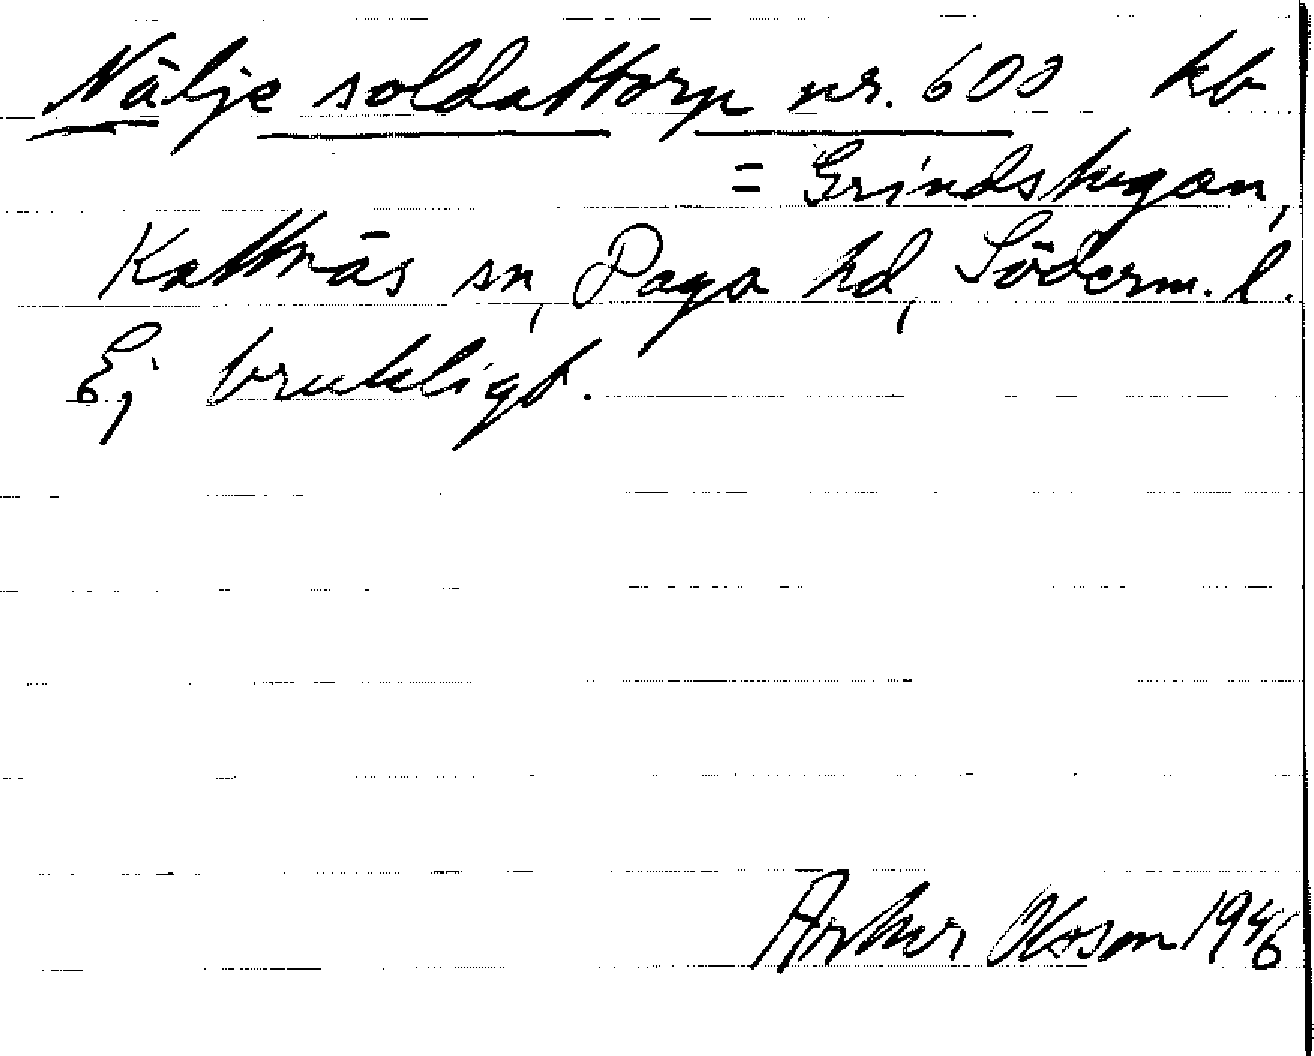 Nälje soldattorp nr. 600 kb
= Grindstugan,
Kattnäs sn, Daga hd, Söderm. l.
Ej brukligt.
Arthur Olsson 1946